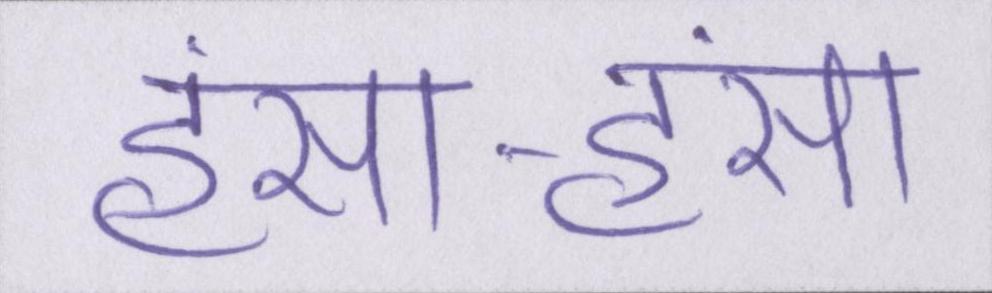 हंसा-हंसा